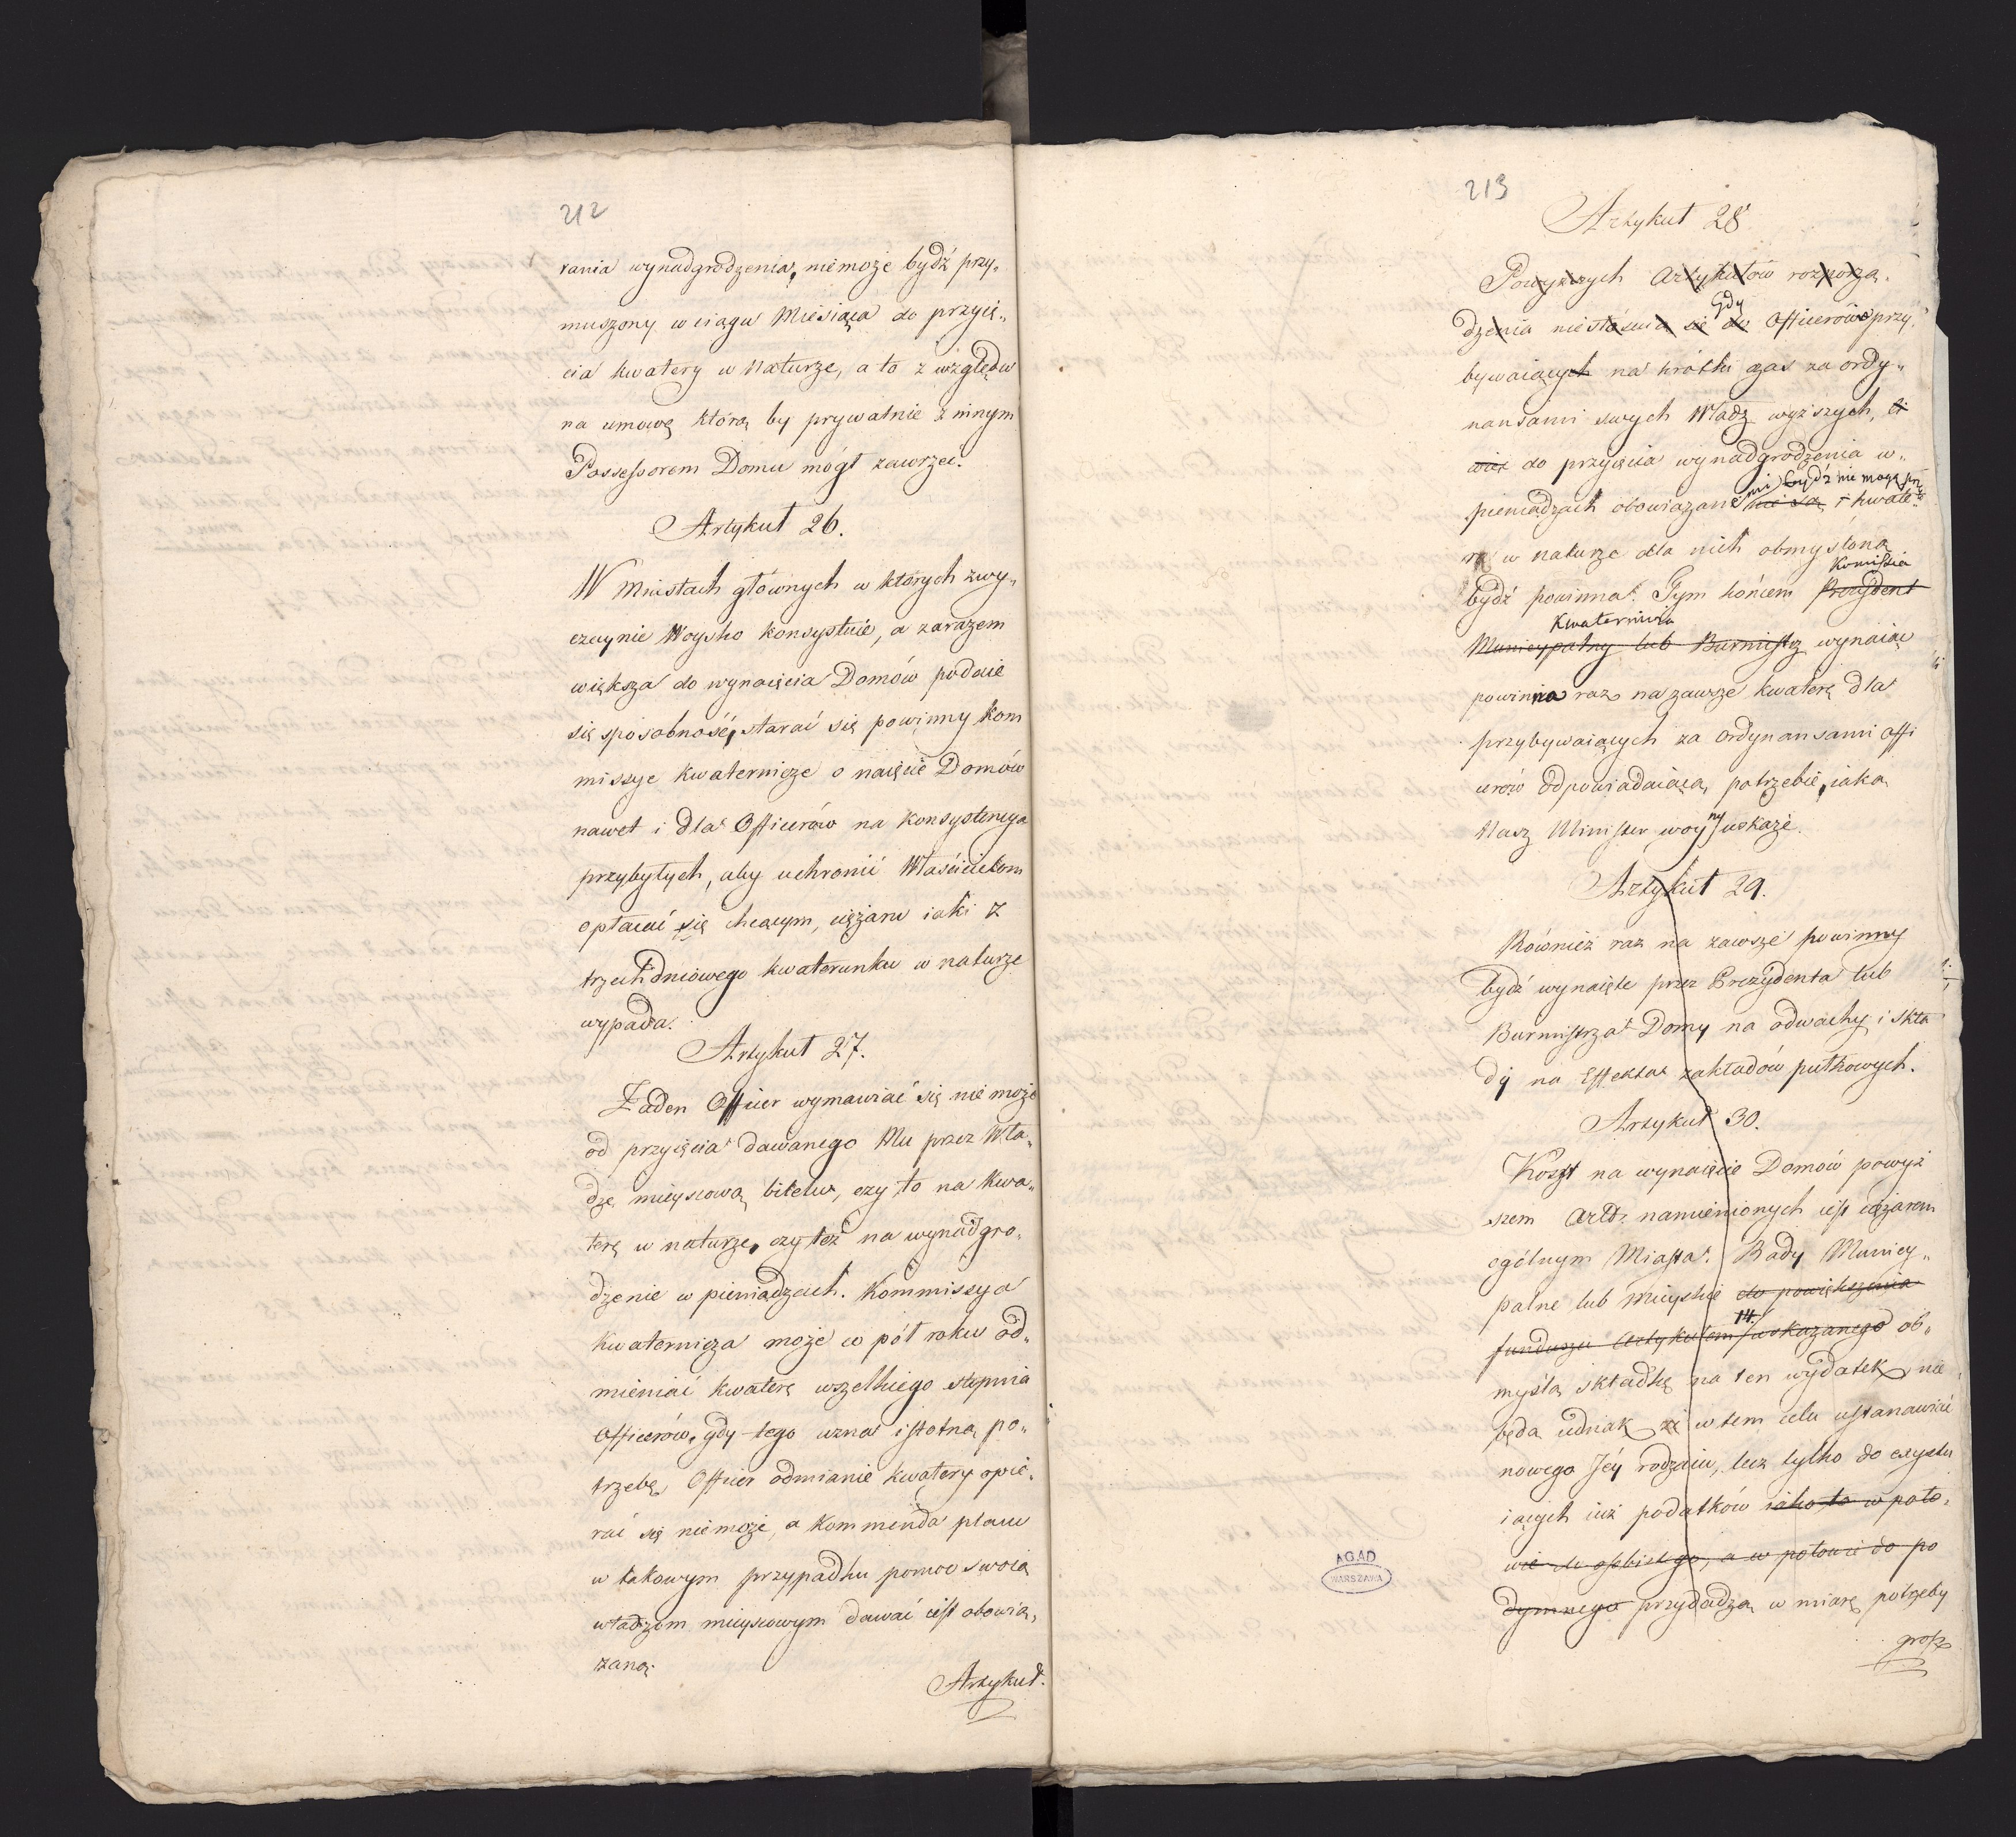 212
rania wynadgrodzenia, niemoże bydź przy„
muszony w ciągu Miesiąca do przyię„
cia kwatery w Naturze, a to z względu
na umowę którą by prywatnie z innym
Possessorem Domu mógł zawrzeć.
Artykuł 26.
W Miastach głównych w których zwy„
czaynie Woysko konsystuie, a zarazem
większa do wynaięcia Domów podaie
się sposobność, starać się powinny Kom
missye kwaternicze o naięcie Domów
nawet i dla Officerów na konsystencyą
przybyłych, aby uchronić Właścicielom
opłacać się chcącym, ciężaru iaki z
trzechdniowego kwaterunku w naturze
wypada.
Artykuł 27.
Żaden Officer wymawiać się nie może
od przyięcia dawanego Mu przez Wła„
dzę mieyscową biletu, czy to na kwa„
terę w naturze, czy też na wynadgro„
dzenie w pieniądzach. Kommissya
kwaternicza może w pół roku od„
mieniać kwaterę wszelkiego stopnia
Officerów, gdy tego uzna istotną po„
trzebę, Officer odmianie kwatery opie„
rać się niemoże, a Kommenda placu
w takowym przypadku pomoc swoią
władzom mieyscowym dawać iest obowią„
zaną.
Artykuł.
213
Artykuł 28
Powyższych Artykułów rozporzą„
dzenia niestosuią się do Gdy Officerowie przy„
bywaiących na krótki czas za ordy„
nansami swych Władz wyższych,
do przyięcia wynadgrodzenia w„
pieniądzach obowiązani nie są bydź nie mogą kwate„
ra w naturze dla nich obmyśloną
bydź powinna. Tym końcem Prezydent Komissia
Municypalny lub Burmistrz Kwaternicza wynaiąć
powinna raz na zawsze kwaterę dla
przybywaiących za Ordynansami offi
cerów odpowiadaiącą potrzebie, iaką
Nasz Minister woyny wskaże.
Artykuł 29.
Również raz na zawsze powinny
bydź wynaięte przez Prezydenta lub
Burmistrza Domy na odwachy i skła
dy na Effekta zakładów pułkowych.
Artykuł 30.
Koszt na wynaięcie Domów powyż
szem Artt. namienionych iest ciężarem
ogólnym Miasta. Rady Municy„
palne lub Mieyskie do powiększenia
funduszu Artykułem 14. wskazanego ob„
myślą składkę na ten wydatek, nie
będą iednak w tem celu ustanawiać
nowego Jéy rodzaiu, lecz tylko do exystu
iących iuż podatków iako to w poło„
wie do osobistego, a w połowie do po
dymnego przydadzą w miarę potrzeby
AGAD
WARSZAWA